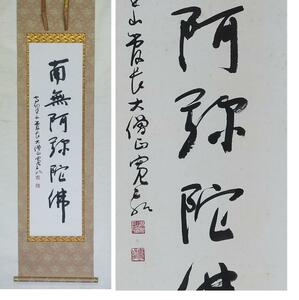 南無阿弥陀佛
山管長大僧正寛
阿弥陀佛
山管長大僧正寛